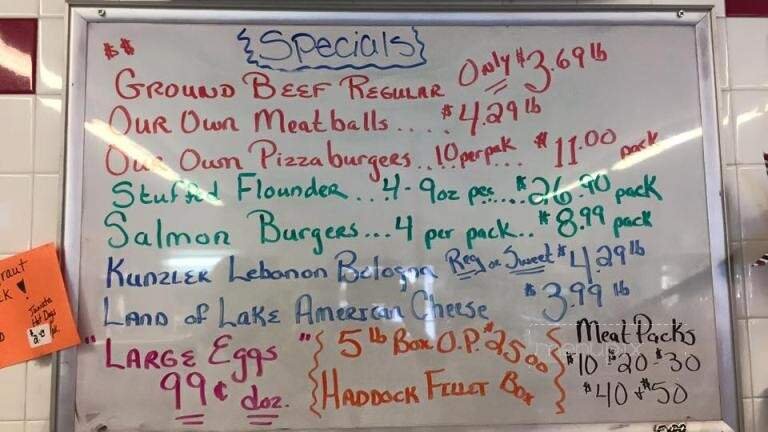 $$ {Specials}
Ground Beef Regular Only $3.69 lb
Our Own Meatballs.... $4.29 lb
Our Own Pizzaburgers..10 per pak... $11.00 pack
Stuffed Flounder...4-9oz pcs.... $26.90 pack
Salmon Burgers...4 per pack.. $8.99 pack
Kunzler Lebanon Bologna Reg or Sweet $4.29 lb
Land of Lake American Cheese $3.99 lb
"Large Eggs"
99¢ doz.
{5 lb Box O.P. $25.00}
{Haddock Fillet Box}
Meat Packs
$10 $20 $30
$40 & $50
raut
k!
Hot Dogs